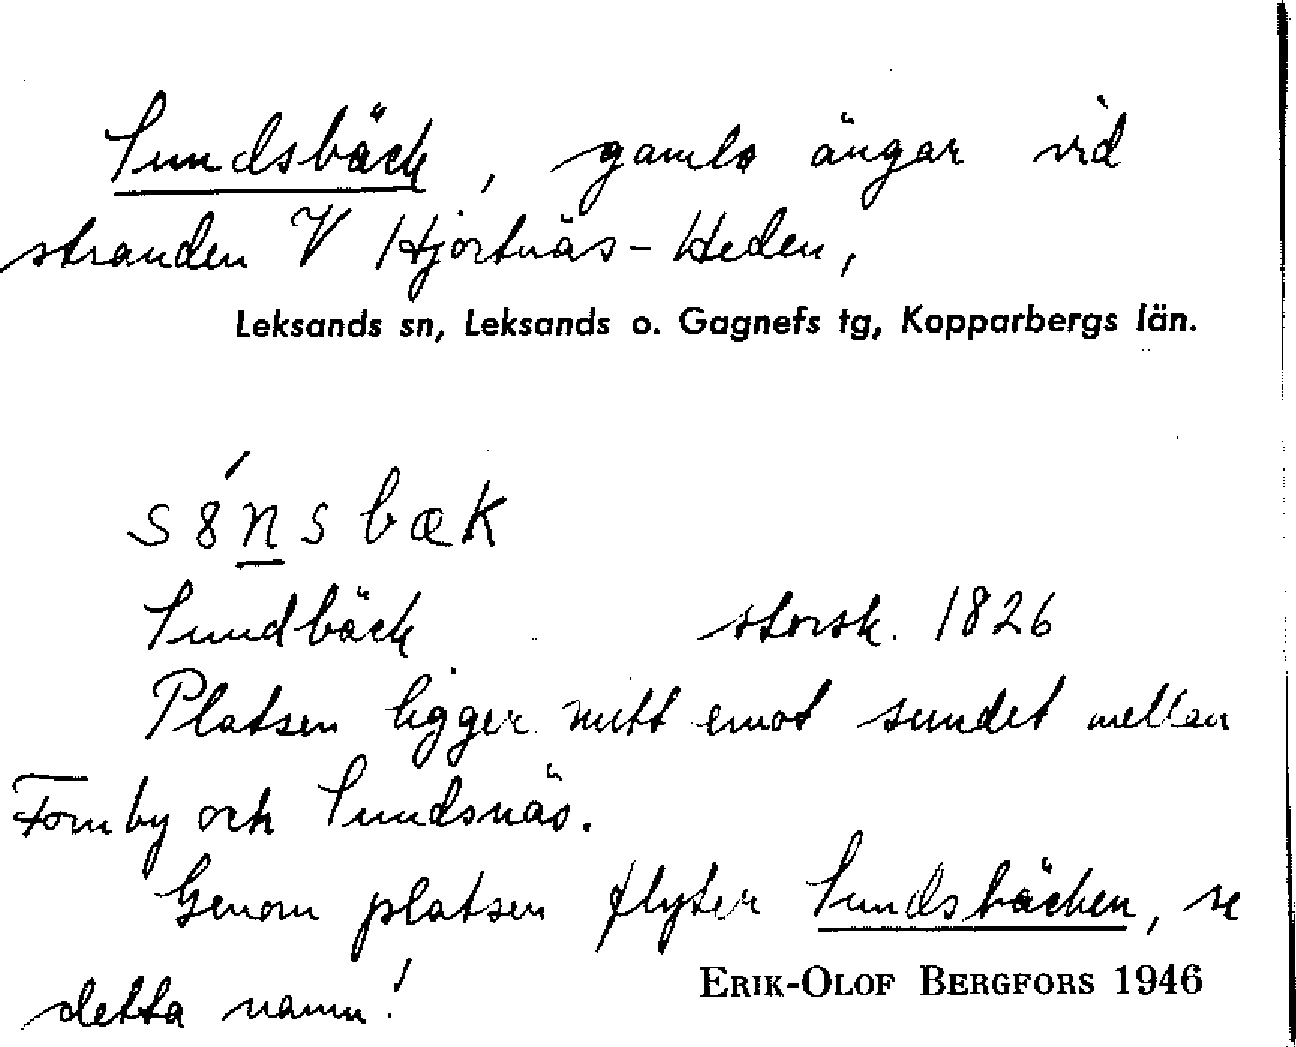 Sundsbäck, gamla ängar vid
stranden V Hjortnäs-Heden,
Leksands sn, Leksands o. Gagnefs tg, Kopparbergs län.
s8́nsbæk
Sundbäck storsk. 1826
Platsen ligger mitt emot sundet mellan
Tornby och Sundsnäs.
Genom platsen flyter Sundsbäcken, se
detta namn!
ERIK-OLOF BERGFORS 1946